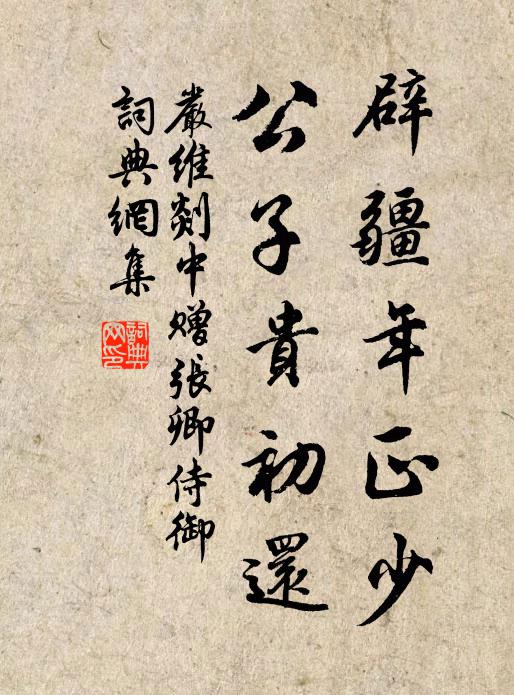 辟疆年正少
公子貴初還
嚴維剡中贈張卿侍御
詞典網集
詞典網印